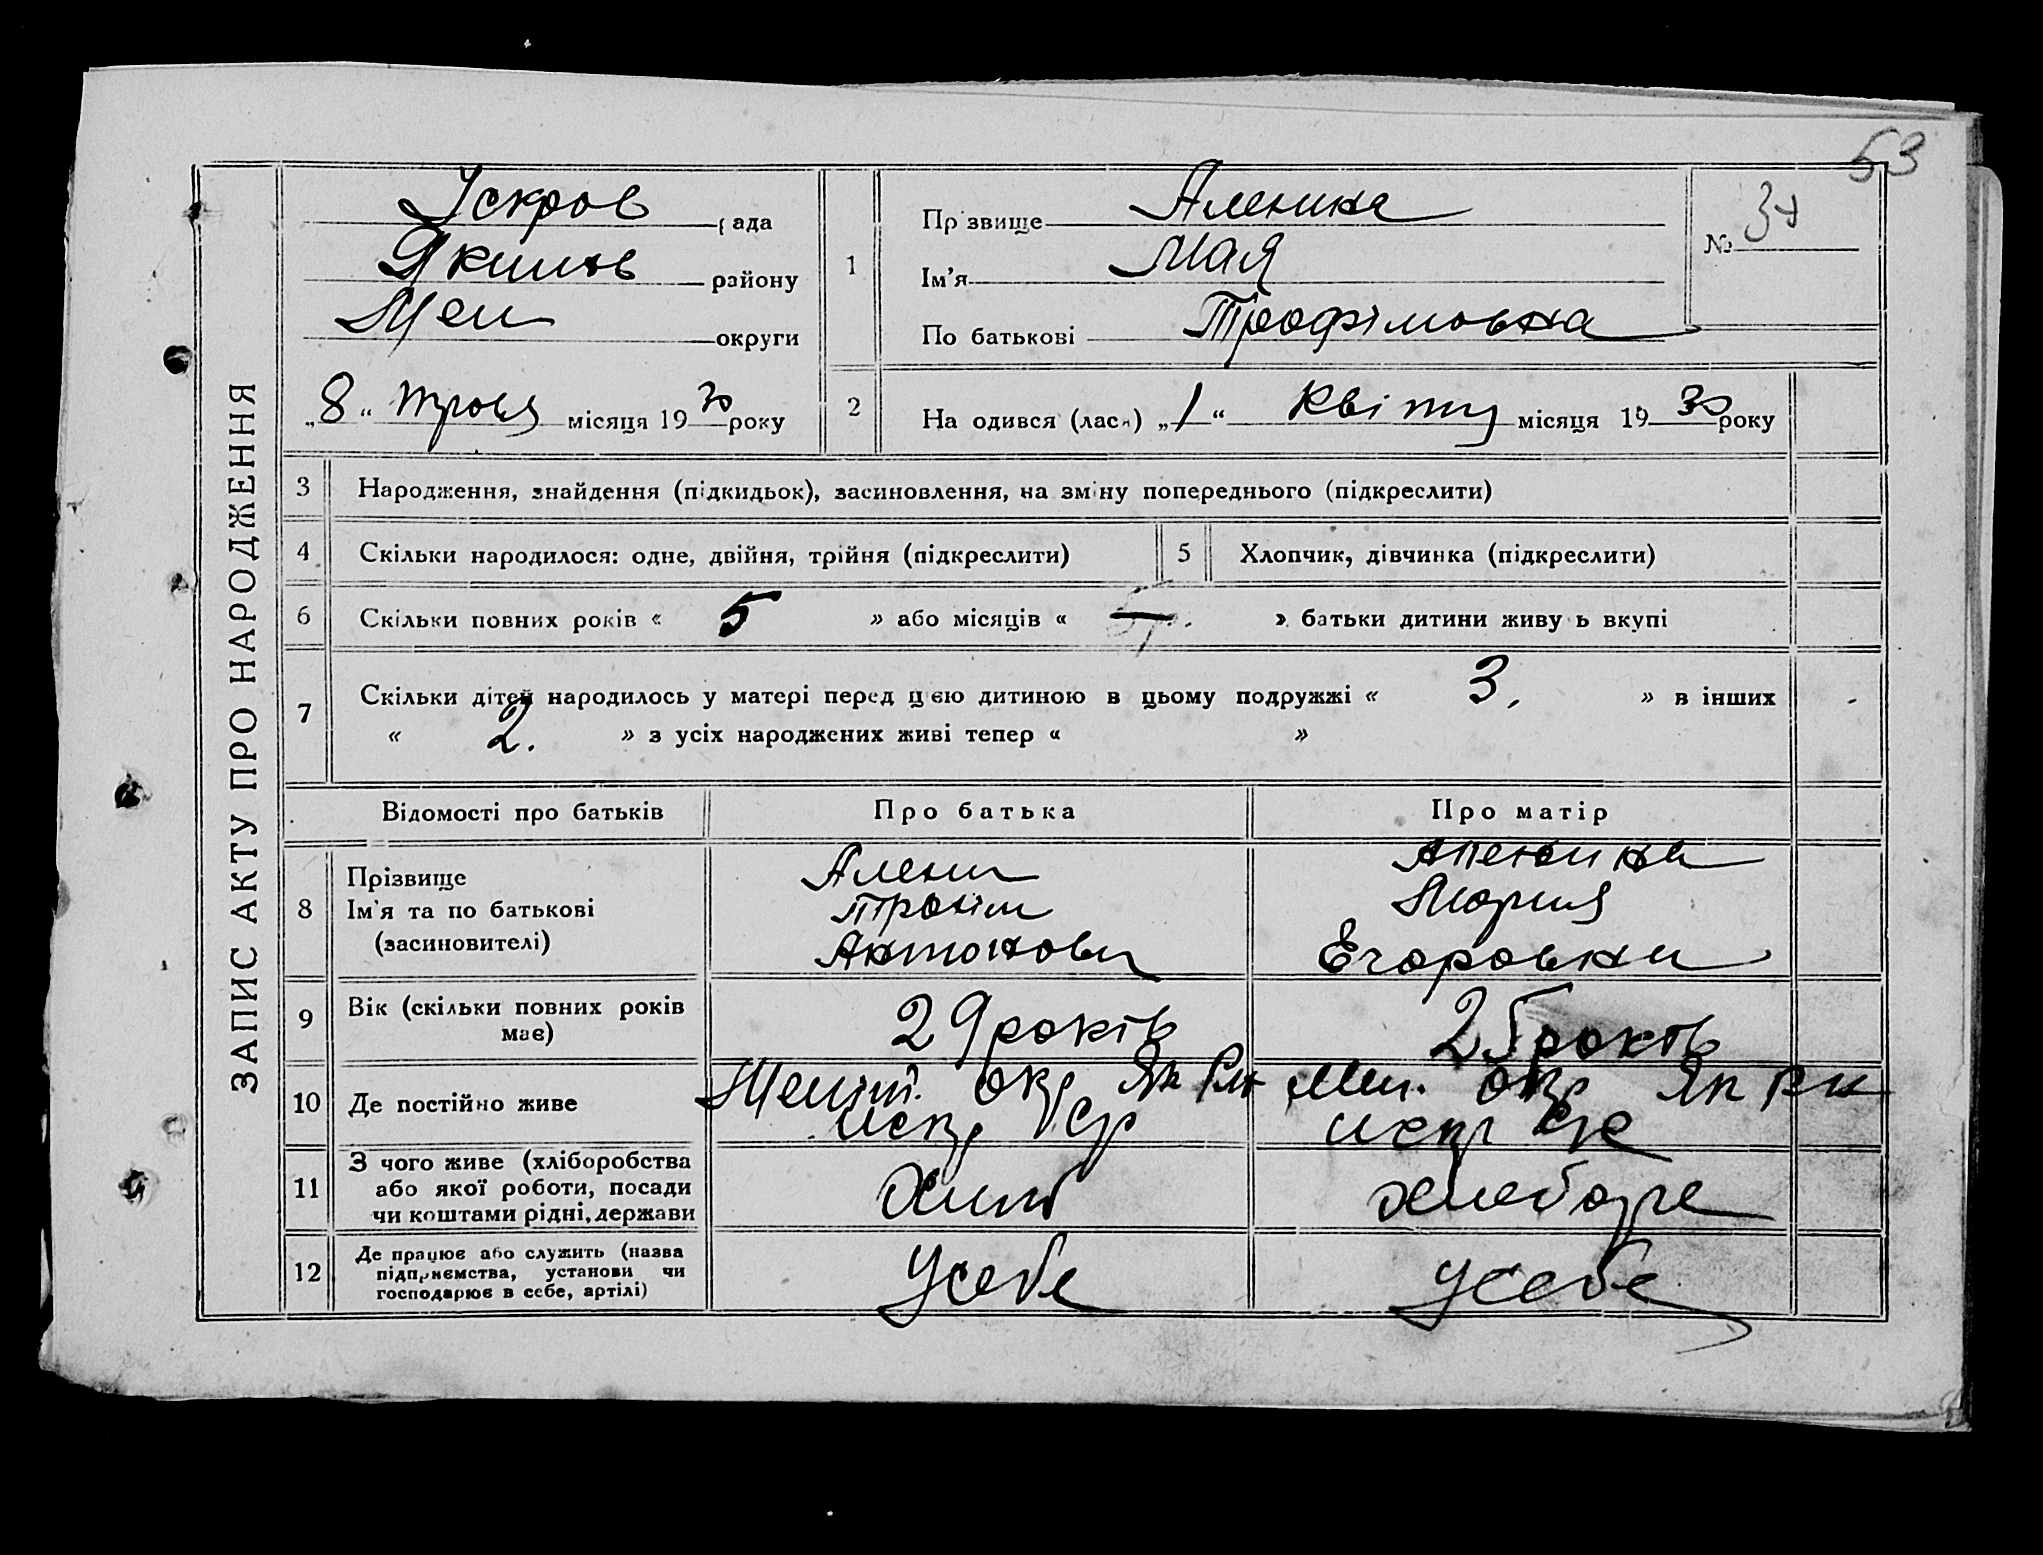 53
ЗАПИС АКТУ ПРО НАРОДЖЕННЯ
Іскров рада
Якимов району
Мел округи
„8“ травня місяця 1930 року
1 Прізвище Аленика
Ім’я Мая
По батькові Трофімовна
№ 34
2 На одився (лася) „1“ квітня місяця 1930 року
3 Народження, знайдення (підкидьок), засиновлення, на зміну попереднього (підкреслити)
4 Скільки народилося: одне, двійня, трійня (підкреслити)
5 Хлопчик, дівчинка (підкреслити)
6 Скільки повних років « 5 » або місяців « — » батьки дитини живуть вкупі
7 Скільки дітей народилось у матері перед цією дитиною в цьому подружжі « 3. » в інших
« 2. » з усіх народжених живі тепер « »
Відомості про батьків Про батька Про матір
8 Прізвище Ім’я та по батькові (засиновителі)
Аленин Трохім Антонович
Аленика Мария Егоровна
9 Вік (скільки повних років має) 29 років 25 років
10 Де постійно живе
Меліт. окр Як Рлн Искр Ср
Мел. окр Як рн искр
11 З чого живе (хліборобства або якої роботи, посади чи коштами рідні, держави
Хліб
12 Де працює або служить (назва підприємства, установи чи господарює в себе, артілі)
У себе
У себе